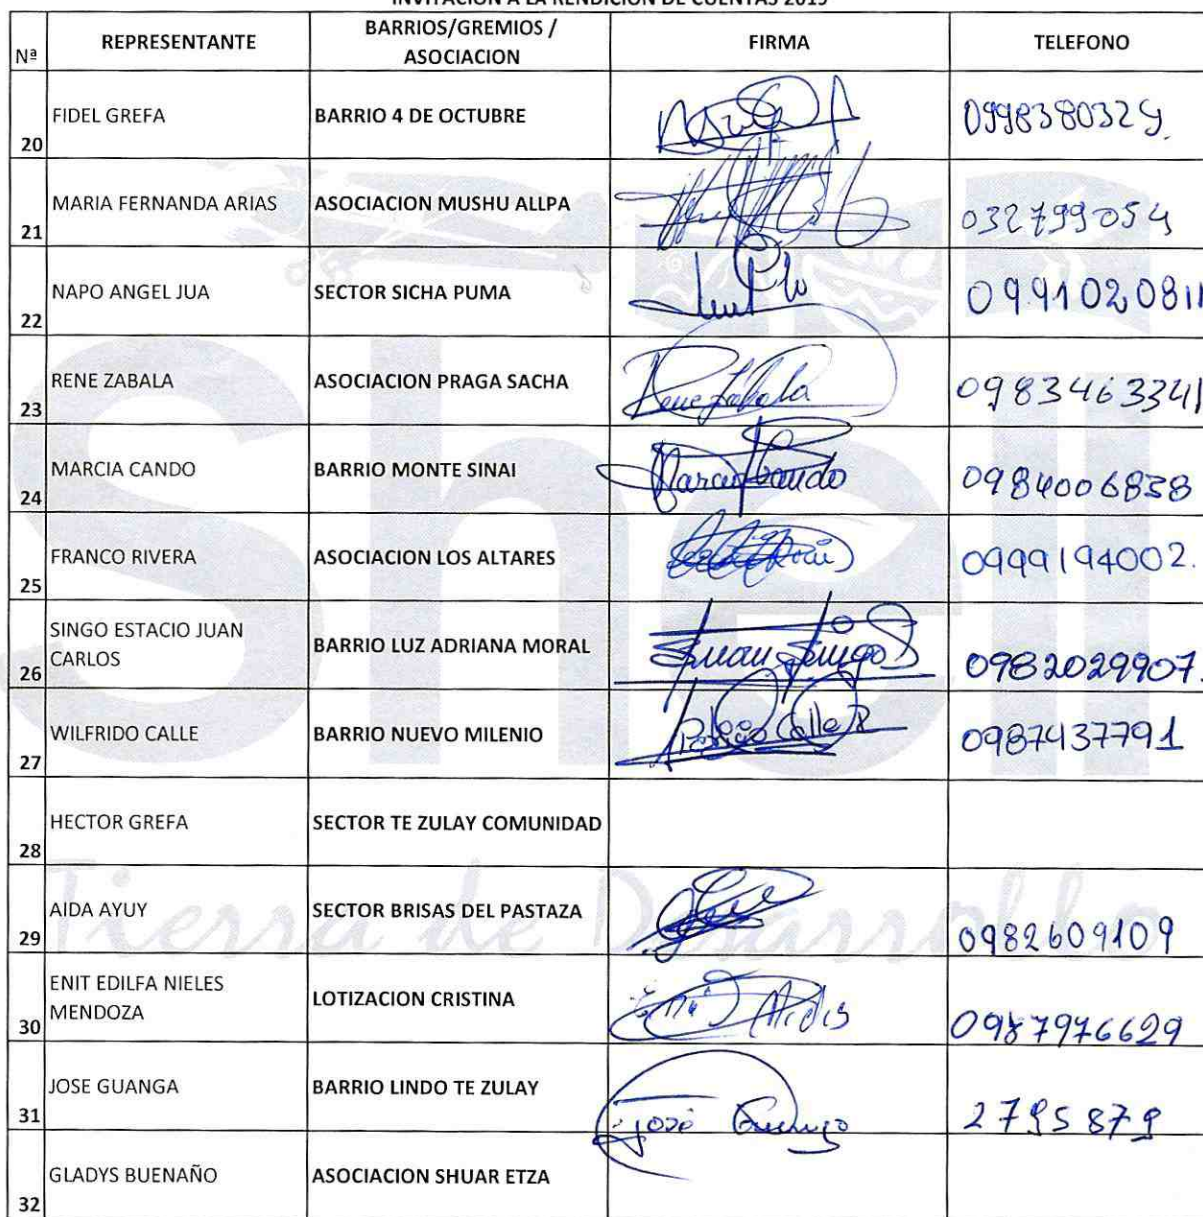 INVITACION A LA RENDICION DE CUENTAS 2019
Nª REPRESENTANTE BARRIOS/GREMIOS / ASOCIACION FIRMA TELEFONO
20 FIDEL GREFA BARRIO 4 DE OCTUBRE 0998380329.
21 MARIA FERNANDA ARIAS ASOCIACION MUSHU ALLPA 032799054
22 NAPO ANGEL JUA SECTOR SICHA PUMA 0991020811
23 RENE ZABALA ASOCIACION PRAGA SACHA Rene Zabala 0983463341
24 MARCIA CANDO BARRIO MONTE SINAI Marcia Cando 0984006838
25 FRANCO RIVERA ASOCIACION LOS ALTARES 0999194002.
26 SINGO ESTACIO JUAN CARLOS BARRIO LUZ ADRIANA MORAL Juan Singo 0982029907.
27 WILFRIDO CALLE BARRIO NUEVO MILENIO Calle 0987437791
28 HECTOR GREFA SECTOR TE ZULAY COMUNIDAD
29 AIDA AYUY SECTOR BRISAS DEL PASTAZA 0982609109
30 ENIT EDILFA NIELES MENDOZA LOTIZACION CRISTINA 0987976629
31 JOSE GUANGA BARRIO LINDO TE ZULAY José Guanga 2795879
32 GLADYS BUENAÑO ASOCIACION SHUAR ETZA
Shell
Tierra de Desarrollo